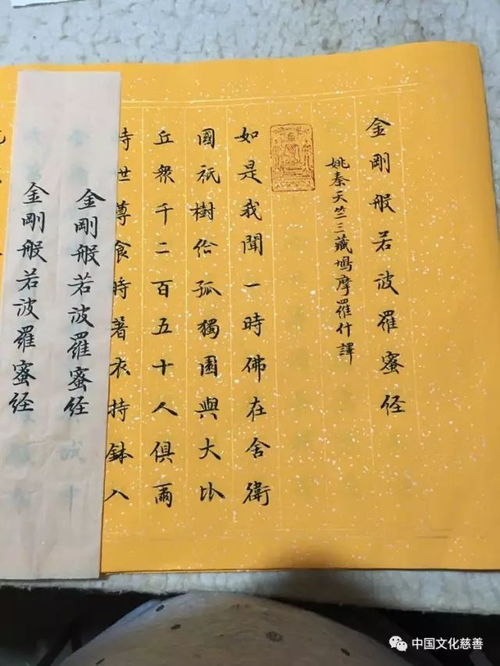 金剛般若波羅蜜经
姚秦天竺三藏鳩摩羅什譯
如是我聞一時佛在舍衛
國祇樹给孤獨園與大比
丘衆千二百五十人俱爾
時世尊食時著衣持鉢入
金剛般若波羅蜜经
金剛般若波羅蜜经
中国文化慈善